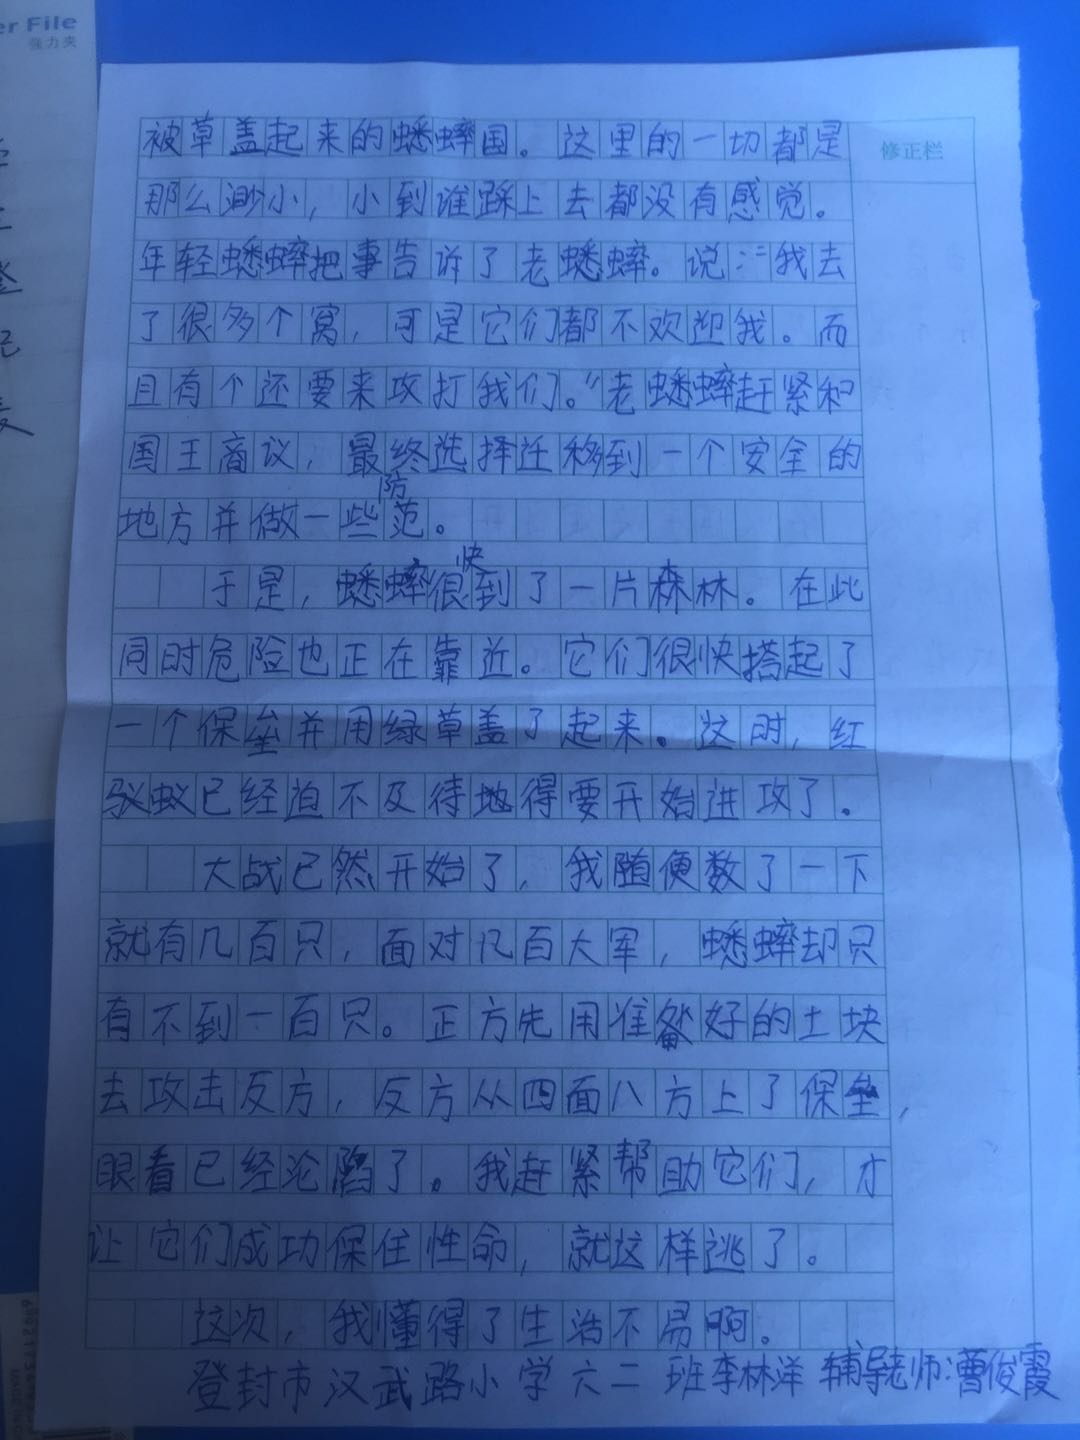 er File
强力夹
修正栏
被草盖起来的蟋蟀国。这里的一切都是
那么渺小，小到谁踩上去都没有感觉。
年轻蟋蟀把事告诉了老蟋蟀。说："我去
了很多个窝，可是它们都不欢迎我。而
且有个还要来攻打我们。"老蟋蟀赶紧和
国王商议，最终选择迁移到一个安全的
地方并做一些防范。
于是，蟋蟀很快到了一片森林。在此
同时危险也正在靠近。它们很快搭起了
一个保垒并用绿草盖了起来。这时，红
驭蚁已经迫不及待地得要开始进攻了。
大战已然开始了，我随便数了一下
就有几百只，面对几百大军，蟋蟀却只
有不到一百只。正方先用准备好的土块
去攻击反方，反方从四面八方上了保垒，
眼看已经沦陷了。我赶紧帮助它们，才
让它们成功保住性命，就这样逃了。
这次，我懂得了生活不易啊。
登封市汉武路小学六二班李林洋 辅导老师：曹俊霞